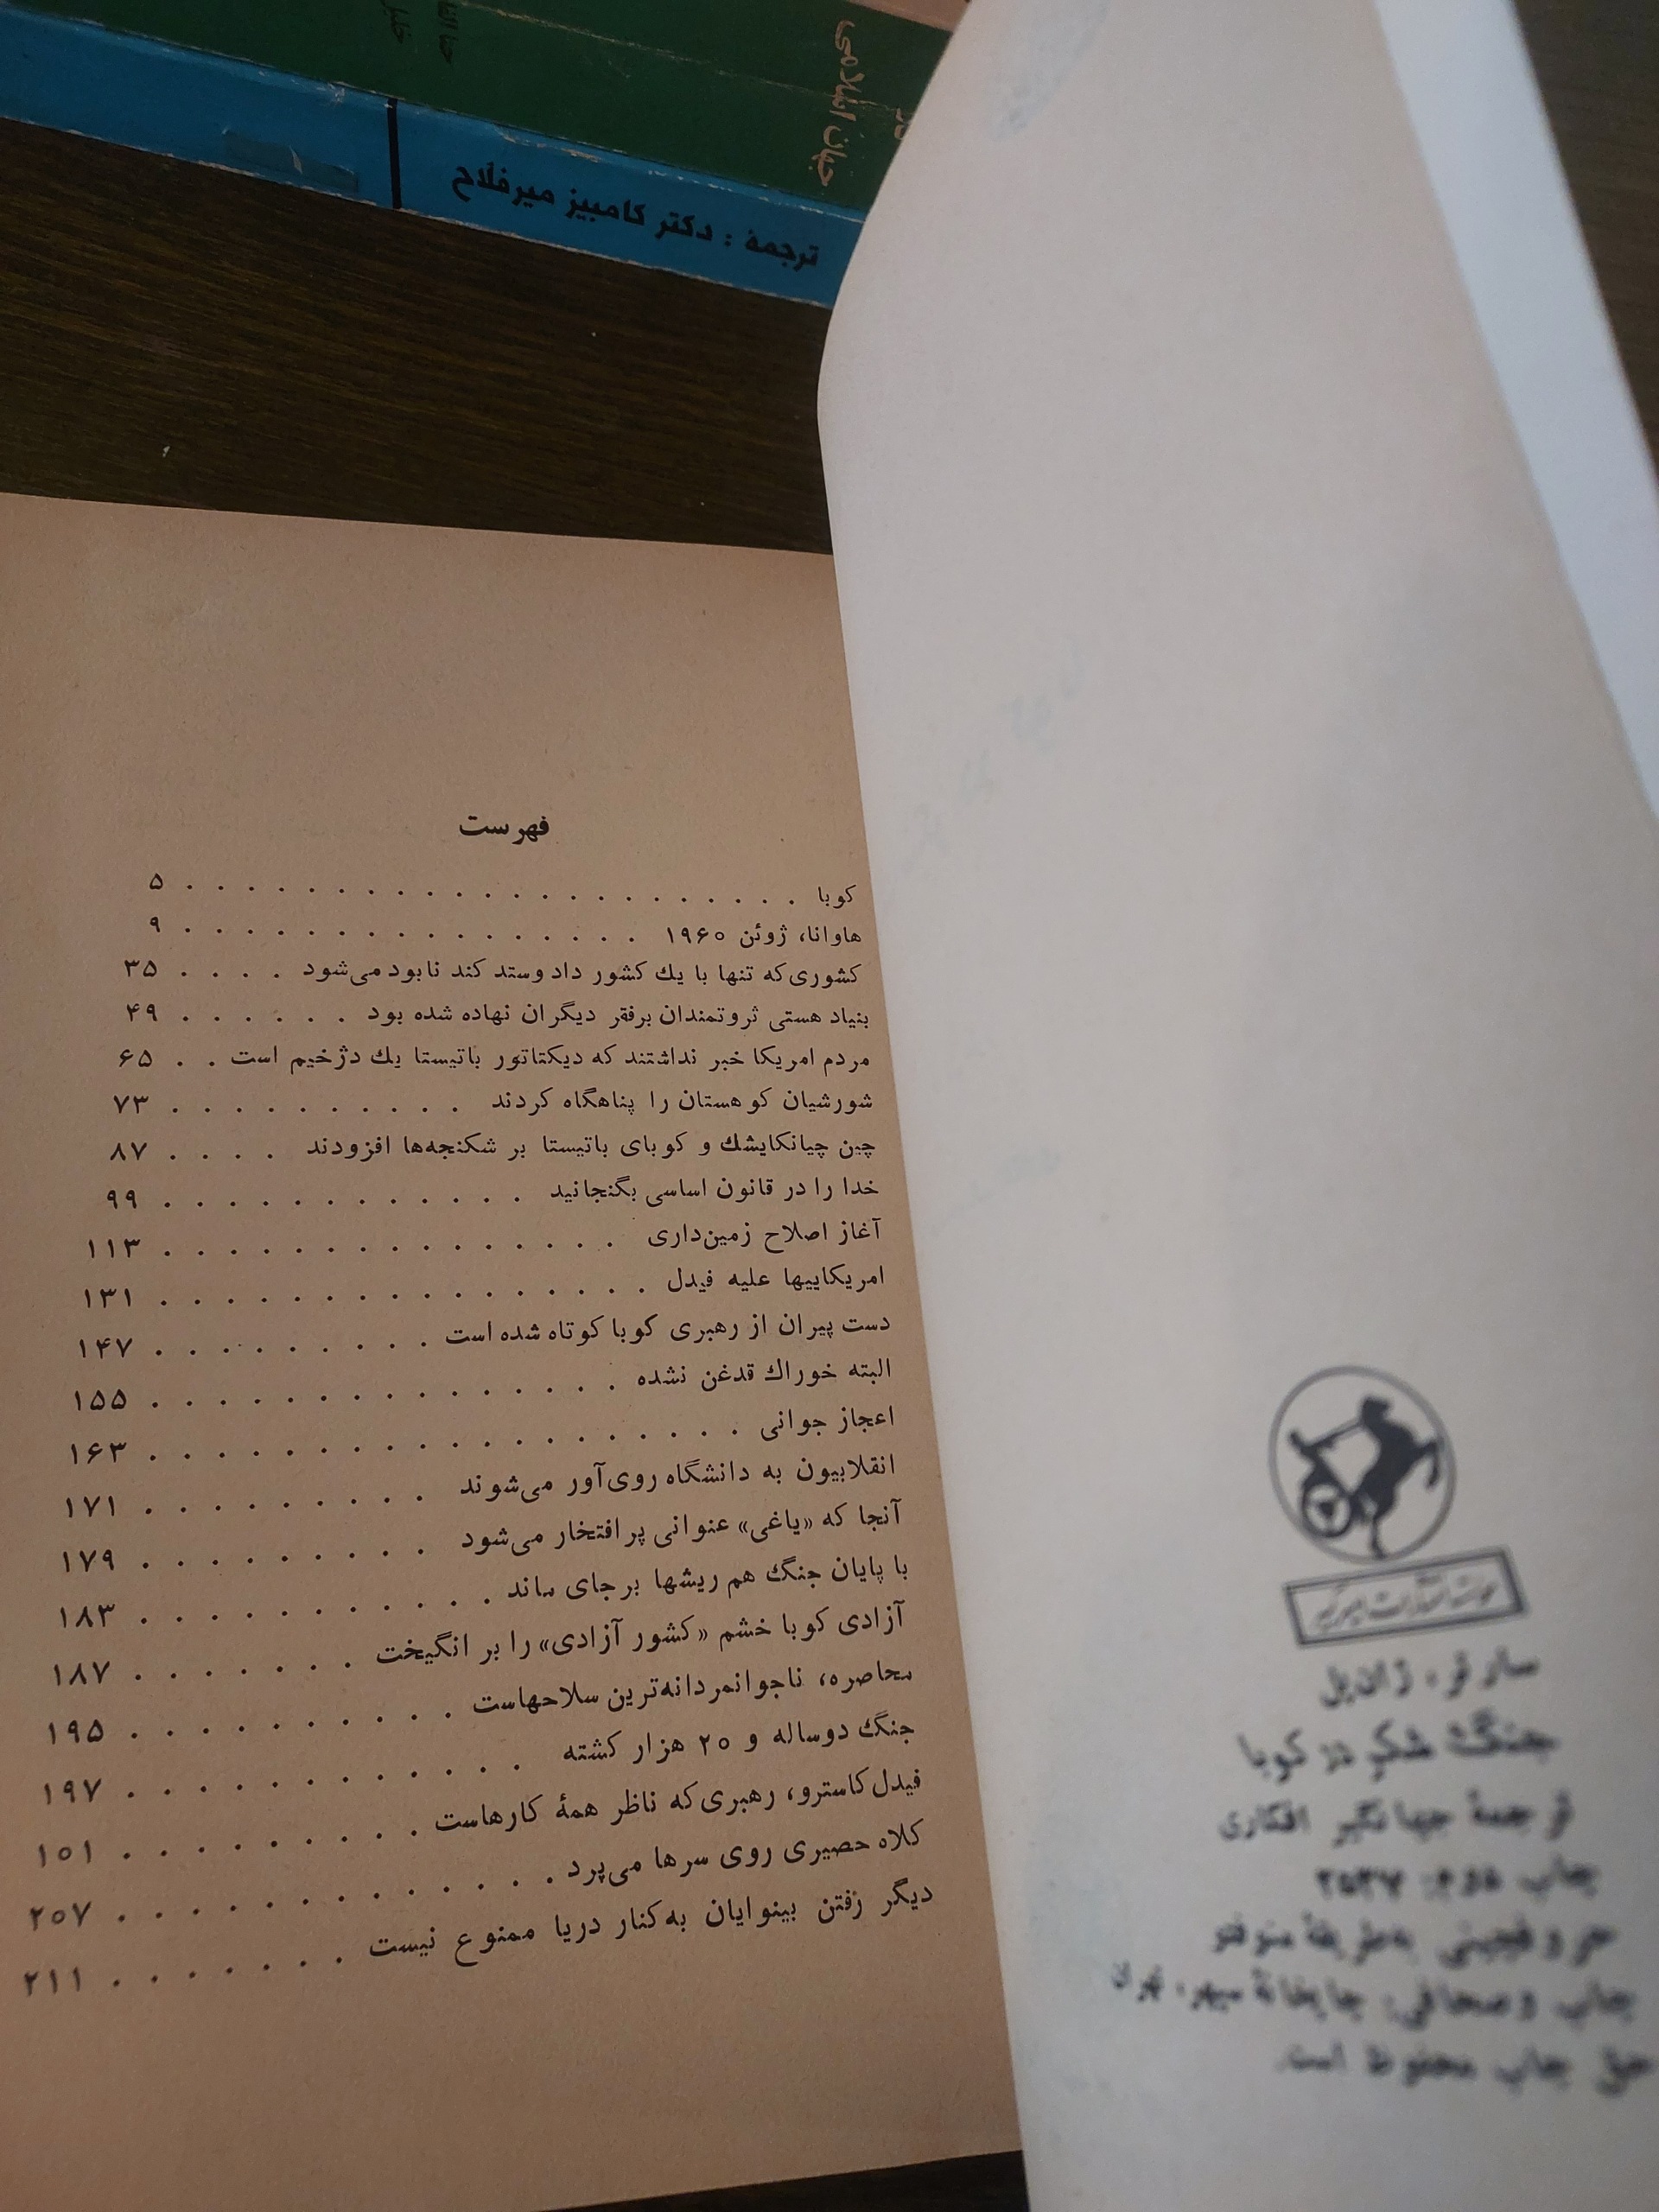 جهان اسلامی
ترجمهٔ : دکتر کامبیز میرفلاح
مؤسسهٔ انتشارات امیرکبیر
سارتر، ژان‌پل
جنگ شکر در کوبا
ترجمهٔ جهانگیر افکاری
چاپ دوم: ۲۵۳۷
حروفچینی به‌طریقهٔ منوفتو
چاپ و صحافی: چاپخانهٔ سپهر، تهران
حق چاپ محفوظ است.
فهرست
کوبا . . . . . . . . . . . . . . . . . . . . . ۵
هاوانا، ژوئن ۱۹۶۰ . . . . . . . . . . . . . . . ۹
کشوری‌که تنها با يك کشور داد وستد کند نابود می‌شود . . . . ۳۵
بنیاد هستی ثروتمندان برفقر دیگران نهاده شده بود . . . . . . ۴۹
مردم امریکا خبر نداشتند که دیکتاتور باتیستا يك دژخیم است . . ۶۵
شورشیان کوهستان را پناهگاه کردند . . . . . . . . . . ۷۳
چین چیانکایشك و کوبای باتیستا بر شکنجه‌ها افزودند . . . . ۸۷
خدا را در قانون اساسی بگنجانید . . . . . . . . . . . . ۹۹
آغاز اصلاح زمین‌داری . . . . . . . . . . . . . . ۱۱۳
امریکاییها علیه فیدل . . . . . . . . . . . . . . . ۱۳۱
دست پیران از رهبری کوبا کوتاه شده است . . . . . . . . . ۱۴۷
البته خوراك قدغن نشده . . . . . . . . . . . . . . . ۱۵۵
اعجاز جوانی . . . . . . . . . . . . . . . . . . ۱۶۳
انقلابیون به دانشگاه روی‌آور می‌شوند . . . . . . . . . ۱۷۱
آنجا که «یاغی» عنوانی پر افتخار می‌شود . . . . . . . . . ۱۷۹
با پایان جنگ هم ریشها بر جای ماند . . . . . . . . . . . ۱۸۳
آزادی کوبا خشم «کشور آزادی» را بر انگیخت . . . . . . . ۱۸۷
محاصره، ناجوانمردانه‌ترین سلاحهاست . . . . . . . . . . ۱۹۵
جنگ دوساله و ۲۰ هزار کشته . . . . . . . . . . . . ۱۹۷
فیدل‌کاسترو، رهبری‌که ناظر همهٔ کارهاست . . . . . . . . . ۱۰۱
کلاه حصیری روی سرها می‌پرد . . . . . . . . . . . . . ۲۰۷
دیگر رفتن بینوایان به‌کنار دریا ممنوع نیست . . . . . . . ۲۱۱